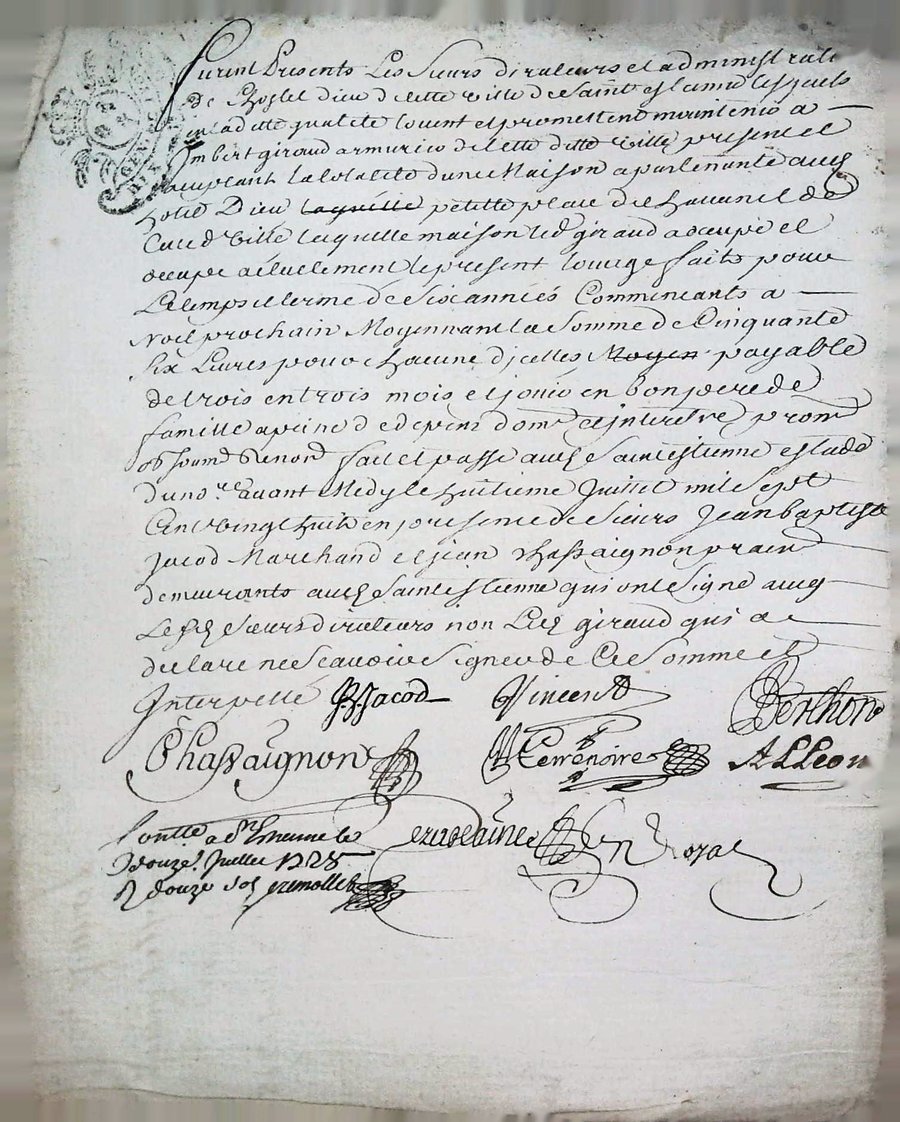 furent Presents Les sieurs directeurs et administrate
de Lhostel dieu de cette ville de saint estienne lesquels
en laditte qualité louent et promettent maintenir a
Imbert giraud armurier de cette ditte ville present et
acceptant la totalité dune Maison apartenante aud
hotel Dieu laquelle petitte place de
Cured. Ville laquelle maison led giraud a occupé et
occupe actuellement le present louage fait pour
Le temps et terme de six années Commencants a
Noel prochain Moyennant la somme de Cinquante
six Livres pour chacune dicelles Moyen payable
de trois en trois mois et jouir en bon pere de
famille a peine de depens dom. et interetz prom
ob soum Renon fait et passé aud saint estienne estude
du no.re avant Midy le huitieme Juillet mil sept
Cent vingt huit en presence de sieurs Jean baptiste
Jacod Marchand et jean Chassaignon prain
demeurants aud saint estienne qui ont signé avec
Lesd sieurs directeurs non Led giraud qui a
declaré ne scavoir signer de Ce sommé et
Interpellé JB. Jacod Vincent Berthon
Chassaignon Terrenoire ALLeon
Contlle a St Etienne le
douze. Juillet 1728
R douze sols grenollet